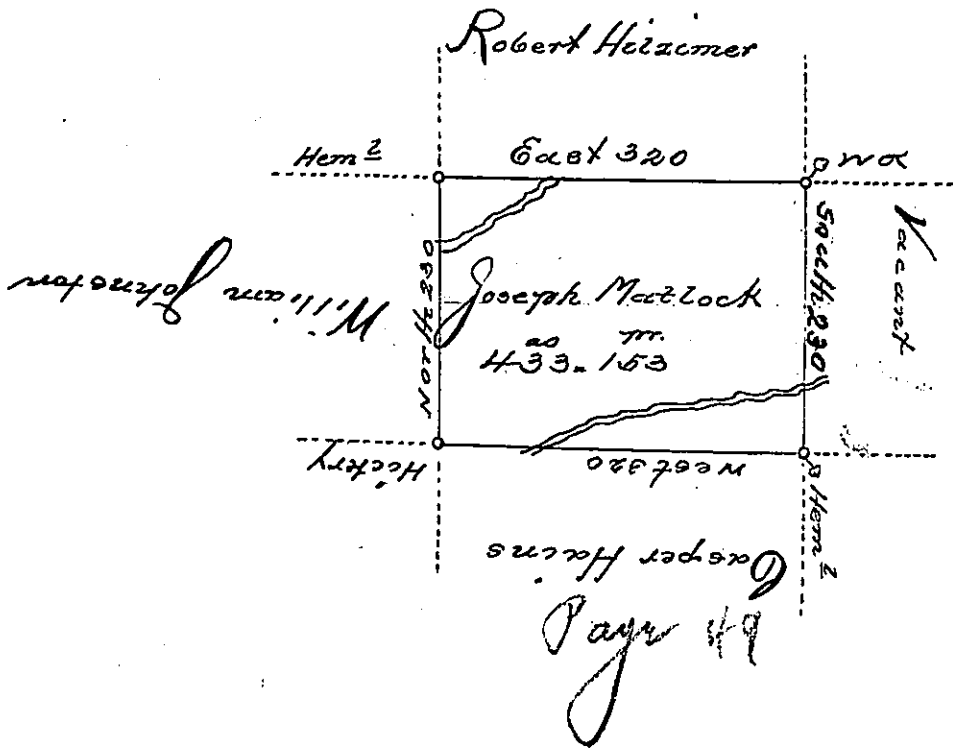 Robert Hilzimer
Hem²
East 320
W O
South 230
Vacant
William Johnston
North 230
Joseph Matlock
as m.
433. 153
Hickry
West 320
Hem²
Casper Hains
Page 49